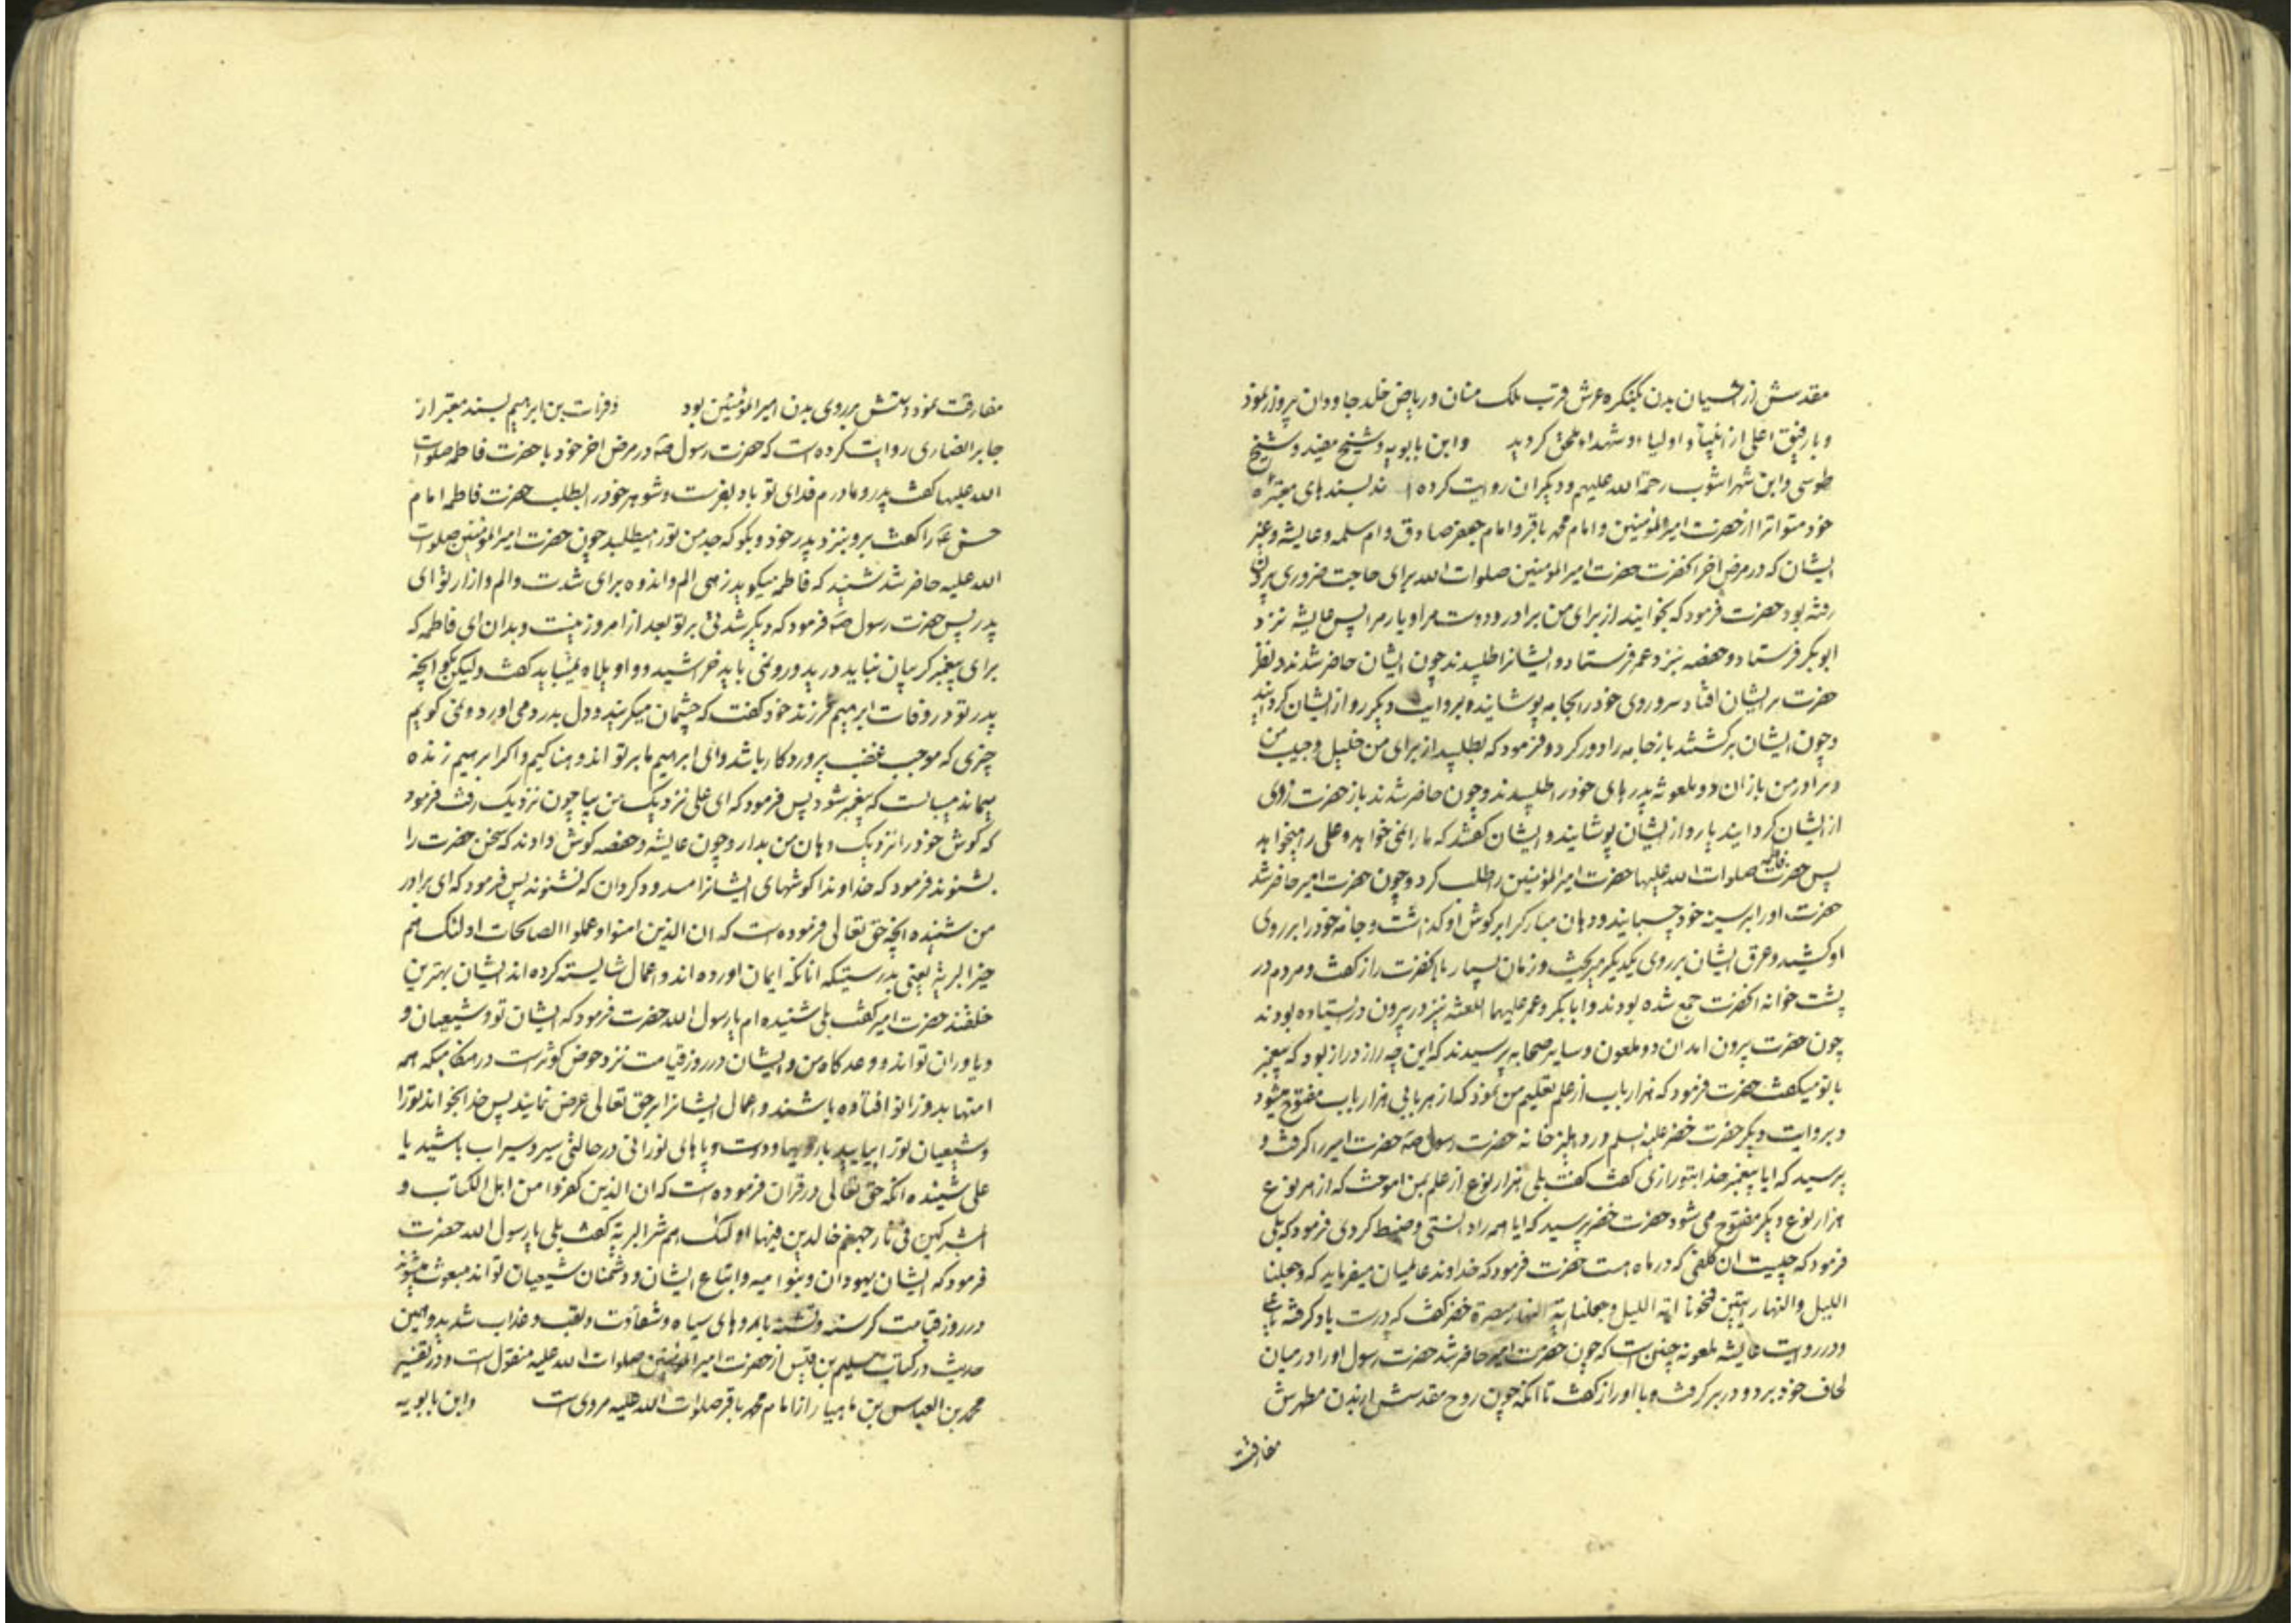 مقدسش از اشیان بدن بکنکره عرش قرب ملک منان و ریاض خلد جاودان پرواز نمود
و بارفیق اعلی از انبیآء و اولیاء و شهداء ملحق کردید وابن بابویه و شیخ مفید و شیخ
طوسی وابن شهراشوب رحمة الله علیهم و دیکران روایت کرده اند بسندهای معتبره
خود متواترا از حضرت امیرالمؤمنین و امام محمد باقر و امام جعفر صادق و ام سلمه و عایشه و غیر
ایشان که در مرض اخر انحضرت حضرت امیرالمؤمنین صلوات الله برای حاجت ضروری بیرون
رفته بود حضرت فرمود که بخوانید از برای من برادر و دوست مرا و یار مرا پس عایشه نزد
ابوبکر فرستاد و حفصه نزد عمر فرستاد و ایشانرا طلبیدند چون ایشان حاضر شدند و نظر
حضرت بر ایشان افتاد سر و روی خود را بجامه پوشانید و بروایت دیکر رو از ایشان کردانید
و چون ایشان برکشتند باز جامه را دور کرد و فرمود که بطلبید از برای من خلیل و حبیب من
و برادر من باز ان دو ملعونه پدرهای خود را طلبیدند و چون حاضر شدند باز حضرت روی
از ایشان کردانید یا رو از ایشان پوشانید و ایشان کفتند که ما را نمی خواهد و علی را میخواهد
پس حضرت فاطمه صلوات الله علیها حضرت امیرالمؤمنین را طلب کرد و چون حضرت امیر حاضر شد
حضرت او را بر سینه خود چسبانید و دهان مبارک را بر کوش او کذاشت و جامه خود را بر روی
او کشید و عرق ایشان بر روی یکدیکر میریخت و زمان بسیار با انحضرت راز کفت و مردم در
پشت خانه انحضرت جمع شده بودند و ابابکر و عمر علیهما اللعنه نیز در بیرون در ایستاده بودند
چون حضرت بیرون امد ان دو ملعون و سایر صحابه پرسیدند که این چه راز دراز بود که پیغمبر
با تو میکفت حضرت فرمود که هزار باب از علم تعلیم من نمود که از هر بابی هزار باب مفتوح میشود
و بروایت دیکر حضرت خضر علیه السلم در دهلیز خانه حضرت رسول صه حضرت امیر را کرفت و
پرسید که ایا پیغمبر خدا بتو رازی کفت کفت بلی هزار نوع از علم بمن اموخت که از هر نوع
هزار نوع دیکر مفتوح می شود حضرت خضر پرسید که ایا همه را دانستی و ضبط کردی فرمود که بلی
فرمود که چیست ان کلفی که در ماه است حضرت فرمود که خداوند عالمیان میفرماید که وجعلنا
اللیل والنهار ایتین فمحونا ایة اللیل وجعلنا ایة النهار مبصرة خضر کفت که درست یاد کرفته یاعلی
و در روایت عایشه ملعونه چنین است که چون حضرت امیر حاضر شد حضرت رسول او را در میان
لحاف خود برد و در بر کرفت و با او راز کفت تا انکه چون روح مقدسش از بدن مطهرش
مفارقت
مفارقت نمود دستش بر روی بدن امیرالمؤمنین بود و فرات بن ابرهیم بسند معتبر از
جابر انصاری روایت کرده است که حضرت رسول صه در مرض اخر خود با حضرت فاطمه صلوات
الله علیها کفت پدر و مادرم فدای تو باد بفرست و شوهر خود را بطلب حضرت فاطمه امام
حسن ع را کفت برو بنزد پدر خود و بکو که جد من تو را میطلبد چون حضرت امیرالمؤمنین صلوات
الله علیه حاضر شد شنید که فاطمه میکوید زهی الم و اندوه برای شدت و الم و ازار تو ای
پدر پس حضرت رسول صه فرمود که دیکر شدتی بر تو بعد از امروز نیست و بدان ای فاطمه که
برای پیغمبر کریبان نباید درید و رو نمی باید خراشید و واویلاه نمیباید کفت ولیکن بکو انچه
پدر تو در وفات ابرهیم فرزند خود کفت که چشمان میکریند و دل بدرد می اورد و نمی کویم
چیزی که موجب غضب پروردکار باشد و ای ابرهیم ما بر تو اندوهناکیم و اکر ابرهیم زنده
میماند میبایست که پیغمبر شود پس فرمود که ای علی نزدیک من بیا چون نزدیک رفت فرمود
که کوش خود را نزدیک دهان من بدار و چون عایشه و حفصه کوش دادند که سخن حضرت را
بشنوند فرمود که خداوندا کوشهای ایشانرا مسدود کردان که نشنوند پس فرمود که ای برادر
من شنیده انچه حق تعالی فرموده است که ان الذین امنوا وعملوا الصالحات اولئک هم
خیر البریة یعنی بدرستیکه انانکه ایمان اورده اند و اعمال شایسته کرده اند ایشان بهترین
خلقند حضرت امیر کفت بلی شنیده ام یا رسول الله حضرت فرمود که ایشان تو و شیعیان و
و یاوران تواند و وعدکاه من و ایشان در روز قیامت نزد حوض کوثرست در مکانیکه همه
امتها بدو زانو افتاده باشند و اعمال ایشانرا بر حق تعالی عرض نمایند پس خدا بخواند تو را
و شیعیان تو را بیایید با روها و دست و پاهای نورانی در حالتی سیر و سیراب باشید یا
علی شنیده انکه حق تعالی در قران فرموده است که ان الذین کفروا من اهل الکتاب و
المشرکین فی نار جهنم خالدین فیها اولئک هم شر البریة کفت بلی یا رسول الله حضرت
فرمود که ایشان یهودان و بنوامیه و اتباع ایشان و دشمنان شیعیان تواند مبعوث میشوند
در روز قیامت کرسنه و تشنه با روهای سیاه و شقاوت و تعب و عذاب شدید و همین
حدیث در کتاب سلیم بن قیس از حضرت امیرالمؤمنین صلوات الله علیه منقول است و در تفسیر
محمد بن العباس بن ماهیار از امام محمد باقر صلوات الله علیه مروی است وابن بابویه